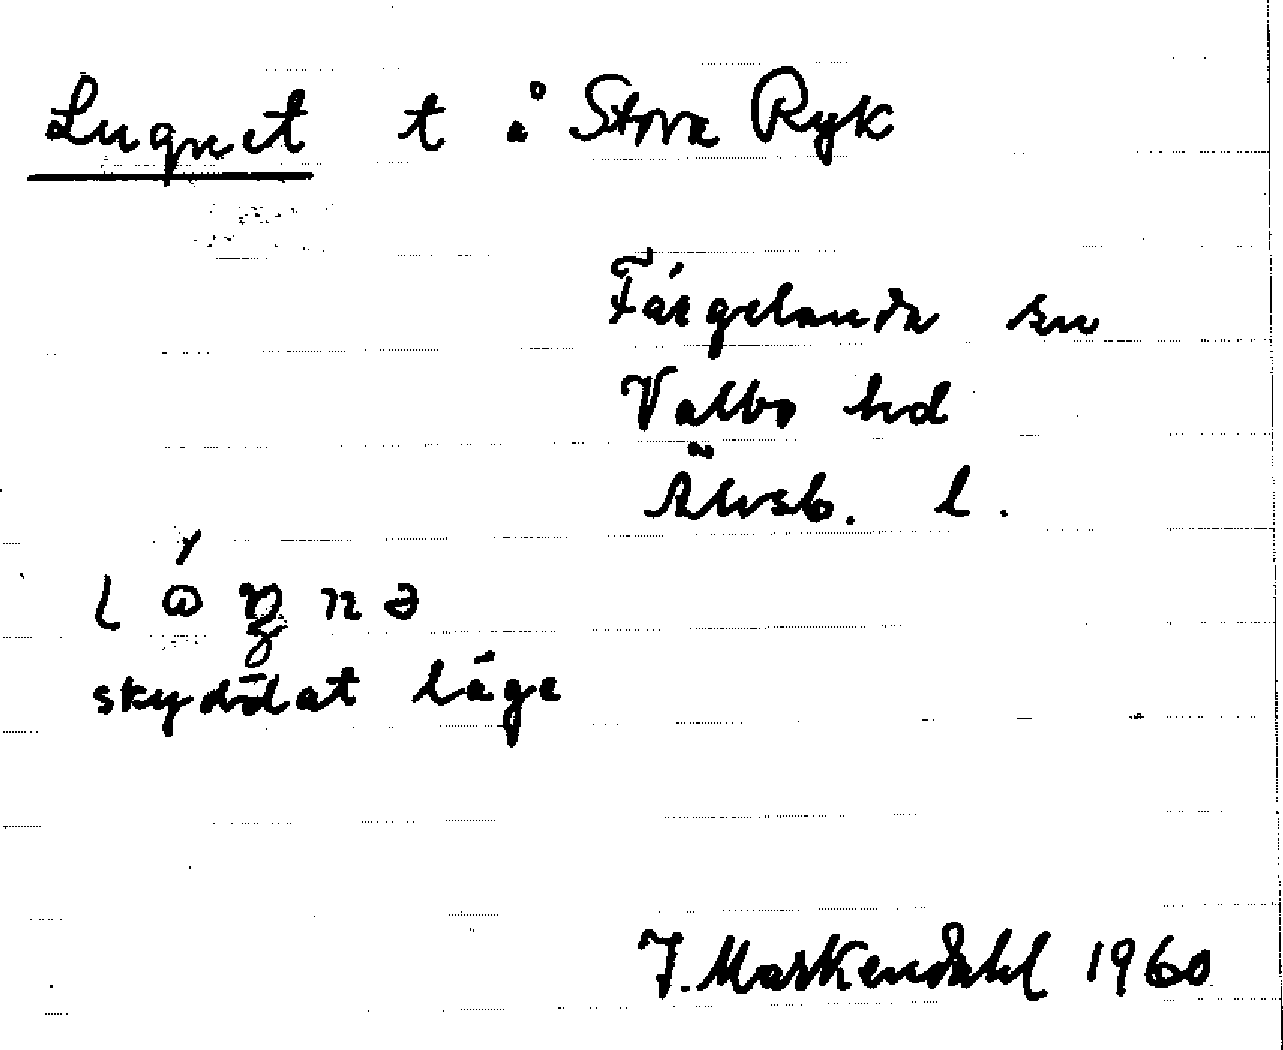 Lugnet t å Stora Ryk
Färgelanda sn
Valbo hd
Älvsb. l.
skyddat läge
J. Markendahl 1960